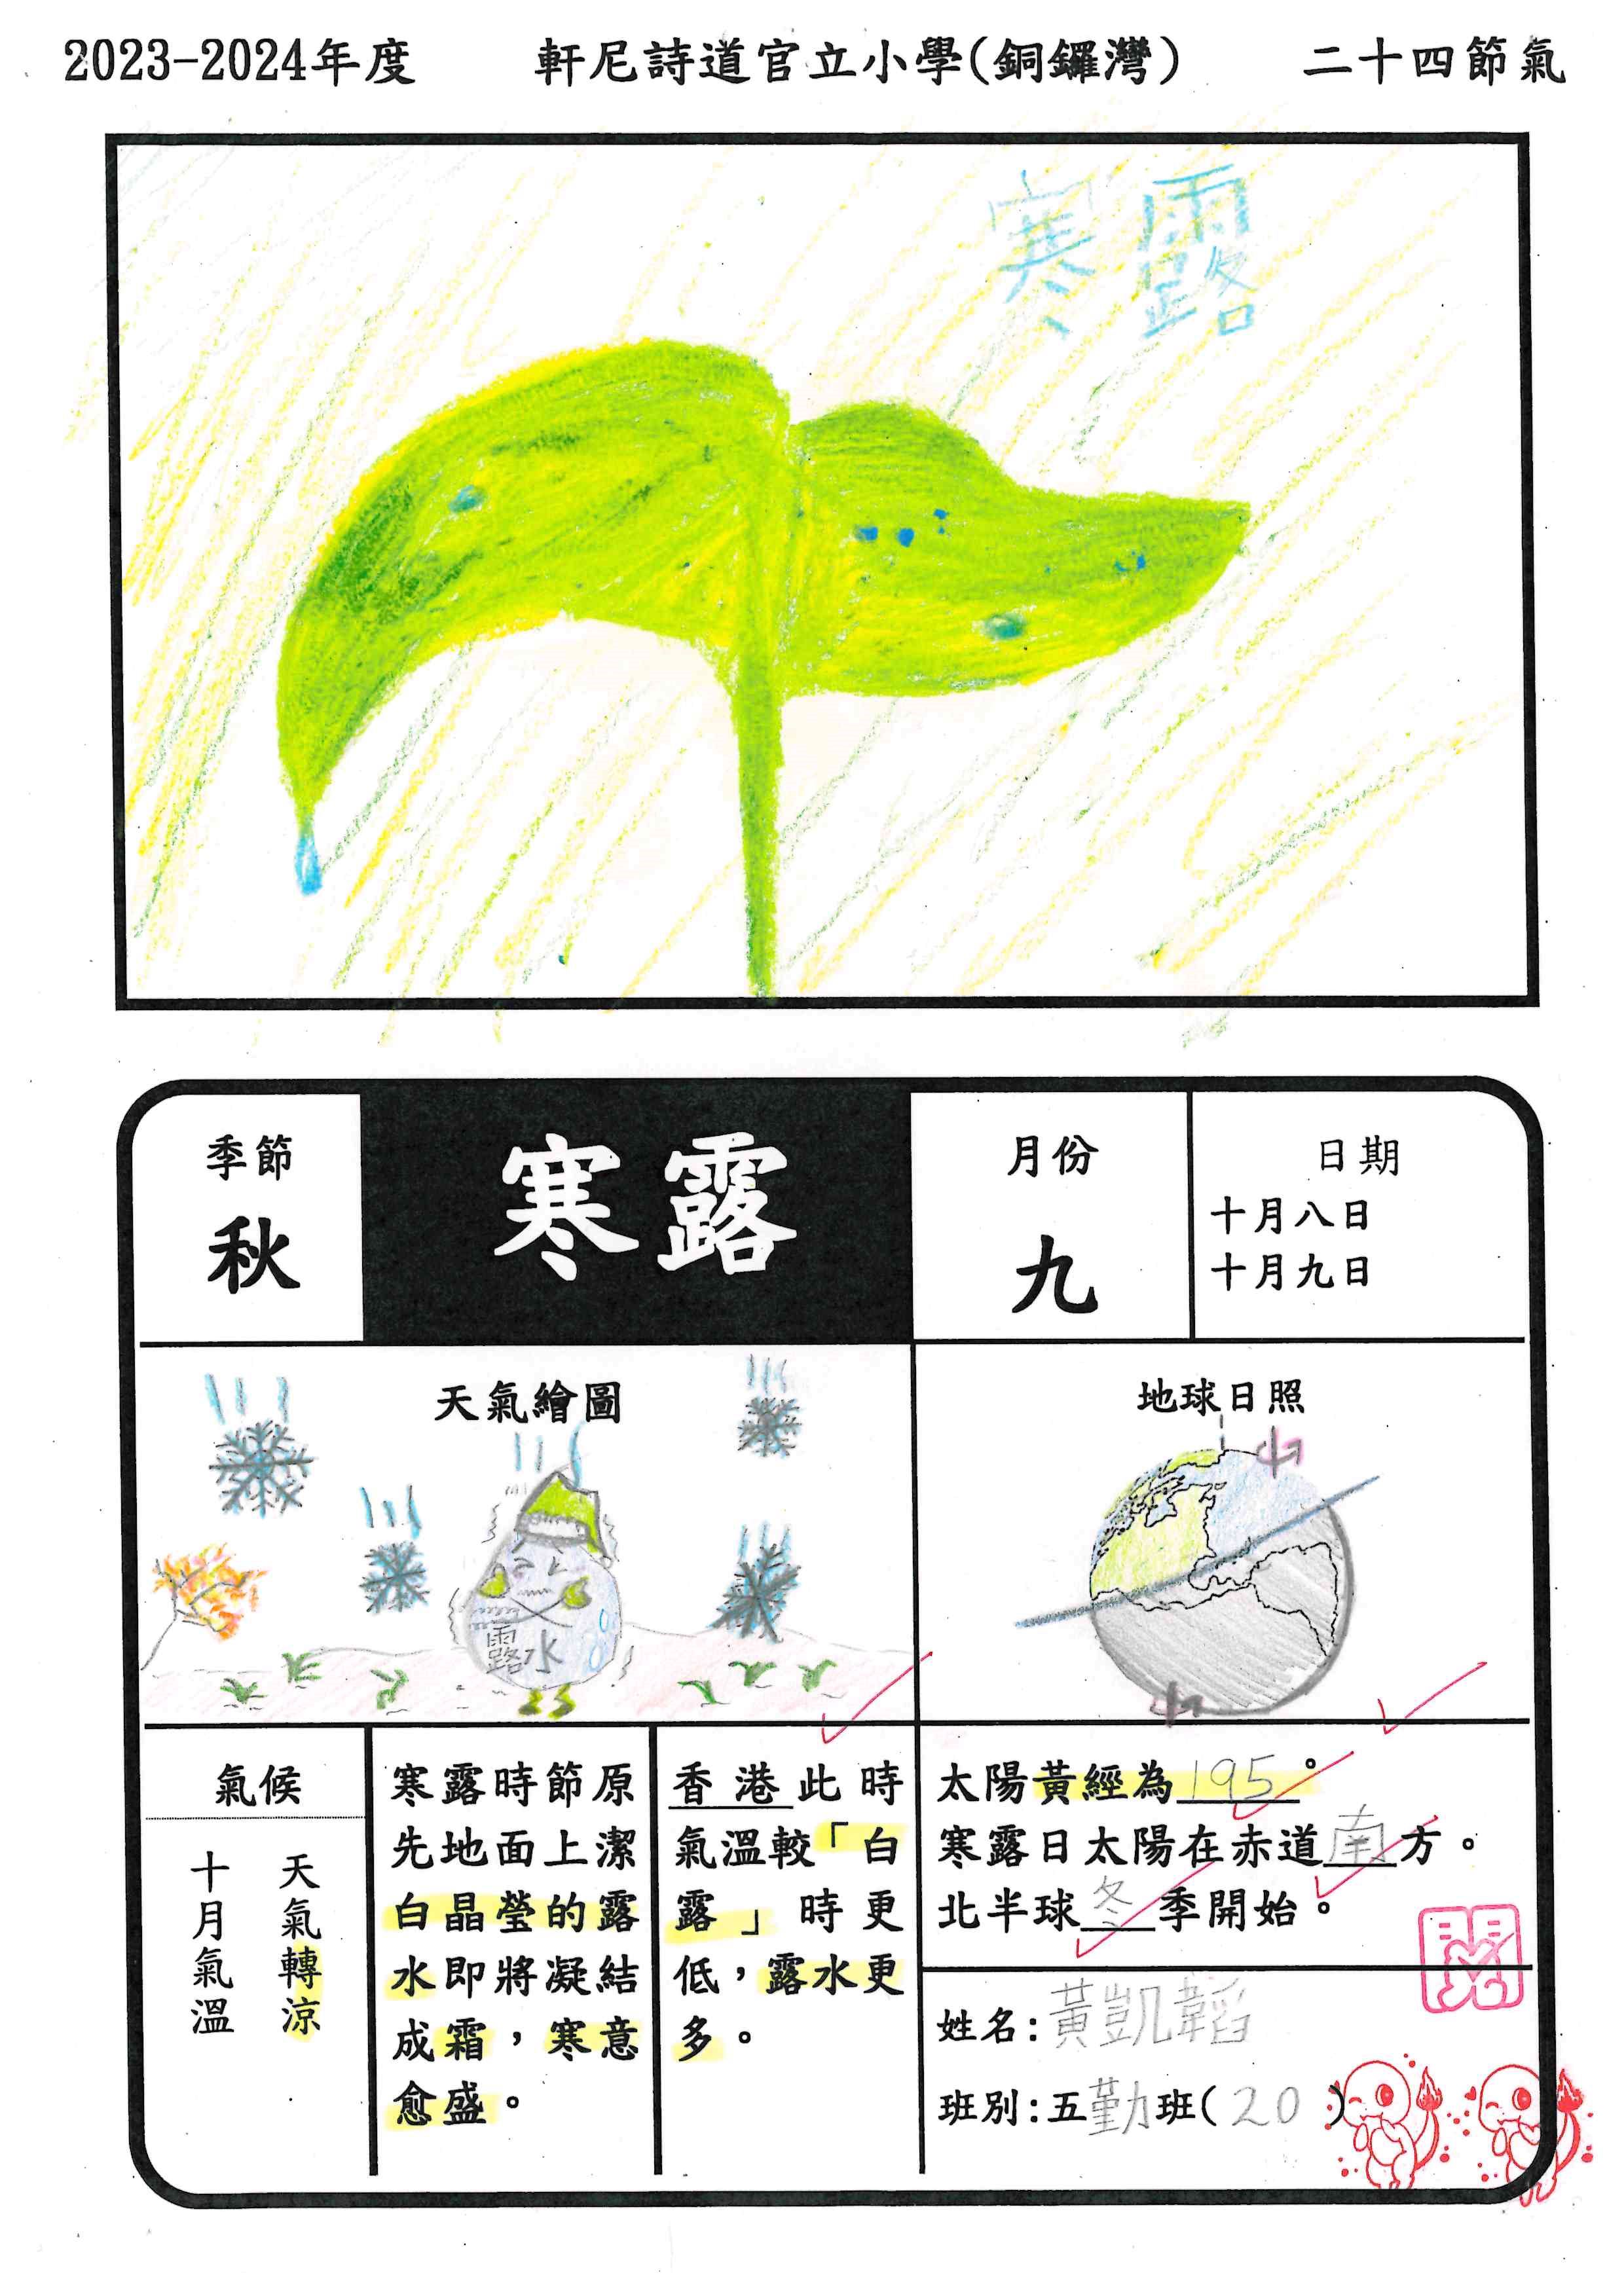 2023-2024年度 軒尼詩道官立小學(銅鑼灣) 二十四節氣
寒露
季節
秋
寒露
月份
九
日期
十月八日
十月九日
天氣繪圖
露水
地球日照
氣候
天氣轉涼
十月氣溫
寒露時節原
先地面上潔
白晶瑩的露
水即將凝結
成霜，寒意
愈盛。
香港此時
氣溫較「白
露」時更
低，露水更
多。
太陽黃經為195°
寒露日太陽在赤道南方。
北半球冬季開始。
閱
姓名:黃凱韜
班別:五勤班(20)